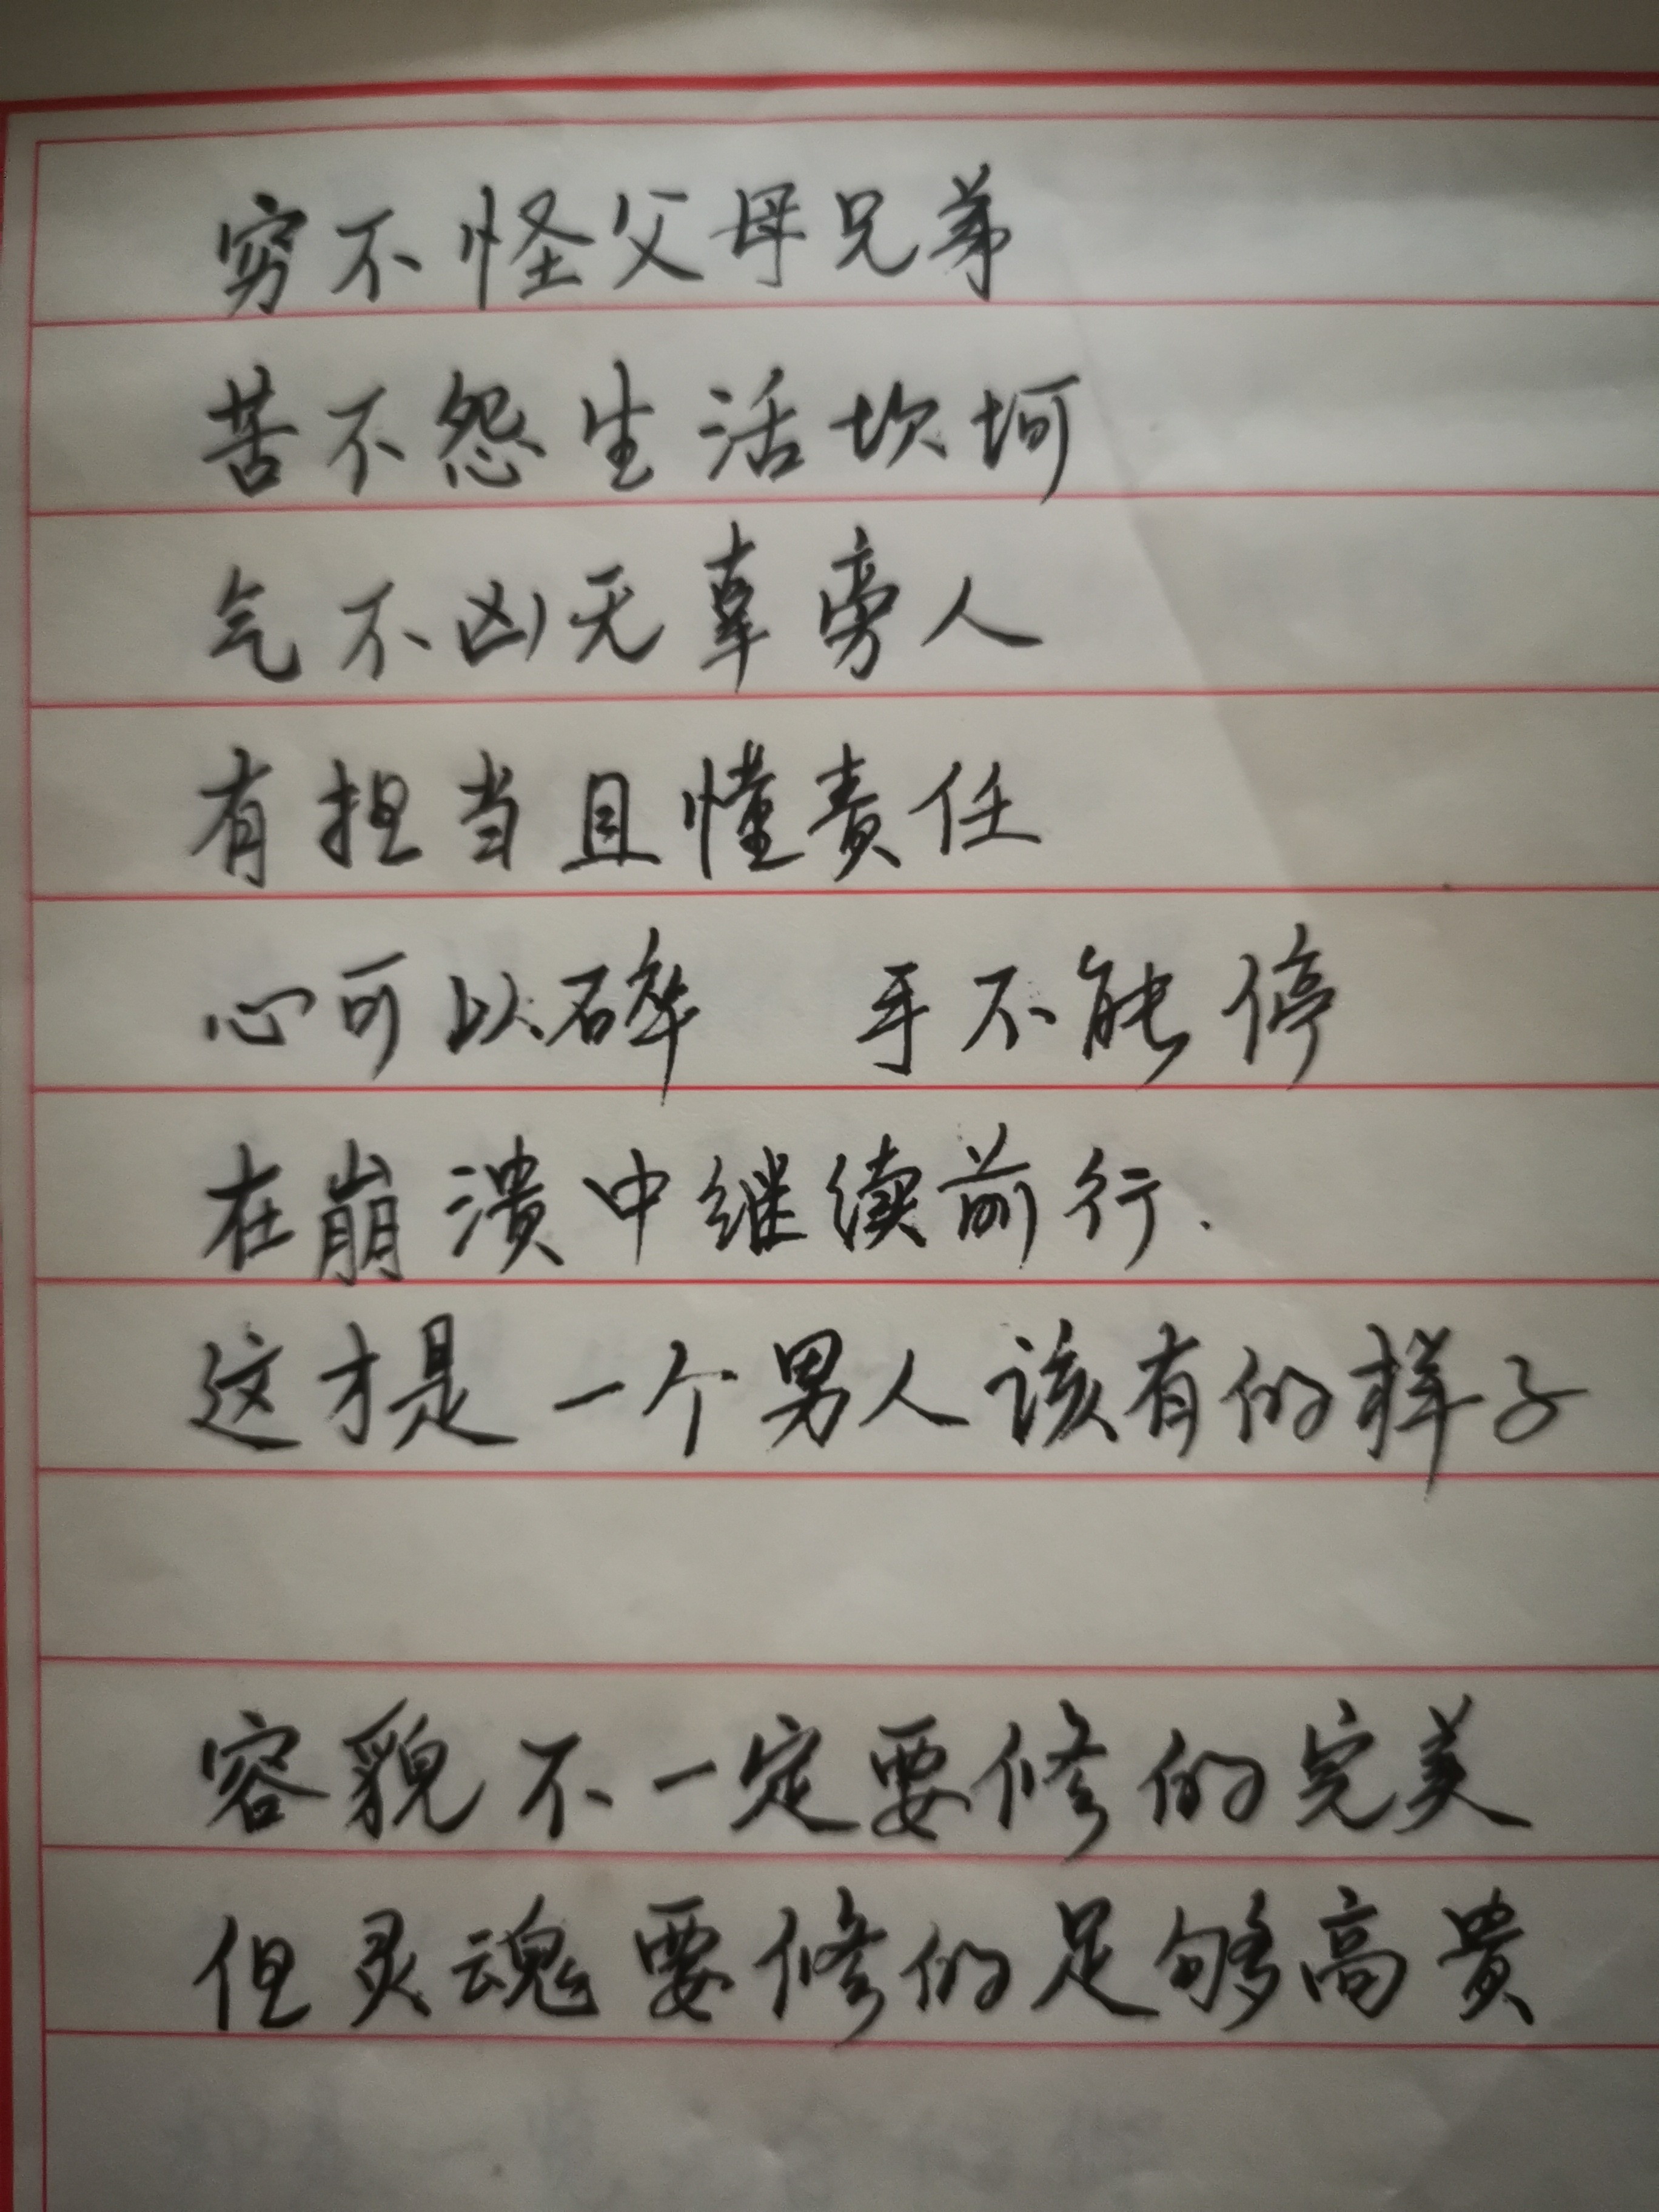 穷不怪父母兄弟
苦不怨生活坎坷
气不凶无辜旁人
有担当且懂责任
心可以碎 手不能停
在崩溃中继续前行.
这才是一个男人该有的样子
容貌不一定要修的完美
但灵魂要修的足够高贵